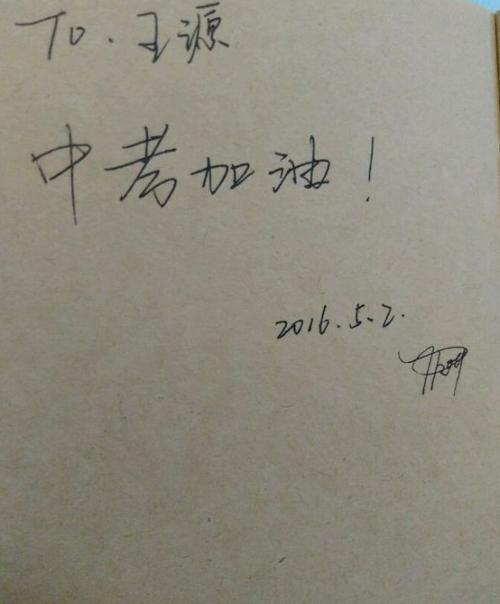 To. 王源
中考加油!
2016.5.2.